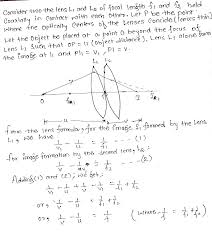 Consider two the lens L₁ and L₂ of focal length f₁ and f₂ held
Coaxially in contact with each other. Let P be the point
where the optically centers of the lenses Coincide (lenses thin)
Let the Object be placed at a point O beyond the focus of
Lens L₁ such that OP = u (object distance). Lens L₁ alone form
the image at I₁ and PI₁ = V₁, PI = V.
L₁ L₂
O P I I₁
u
from the lens formula, for the image I₁ formed by the lens
L₁, we have
1/V₁ - 1/u = 1/f₁ --- (1)
for image formation by the second lens, L₂:
1/V - 1/V₁ = 1/f₂ --- (2)
Adding (1) and (2), we get,
1/V₁ - 1/u + 1/V - 1/V₁ = 1/f₁ + 1/f₂
or, 1/V - 1/u = 1/f₁ + 1/f₂
or, 1/V - 1/u = 1/f (where 1/f = 1/f₁ + 1/f₂)